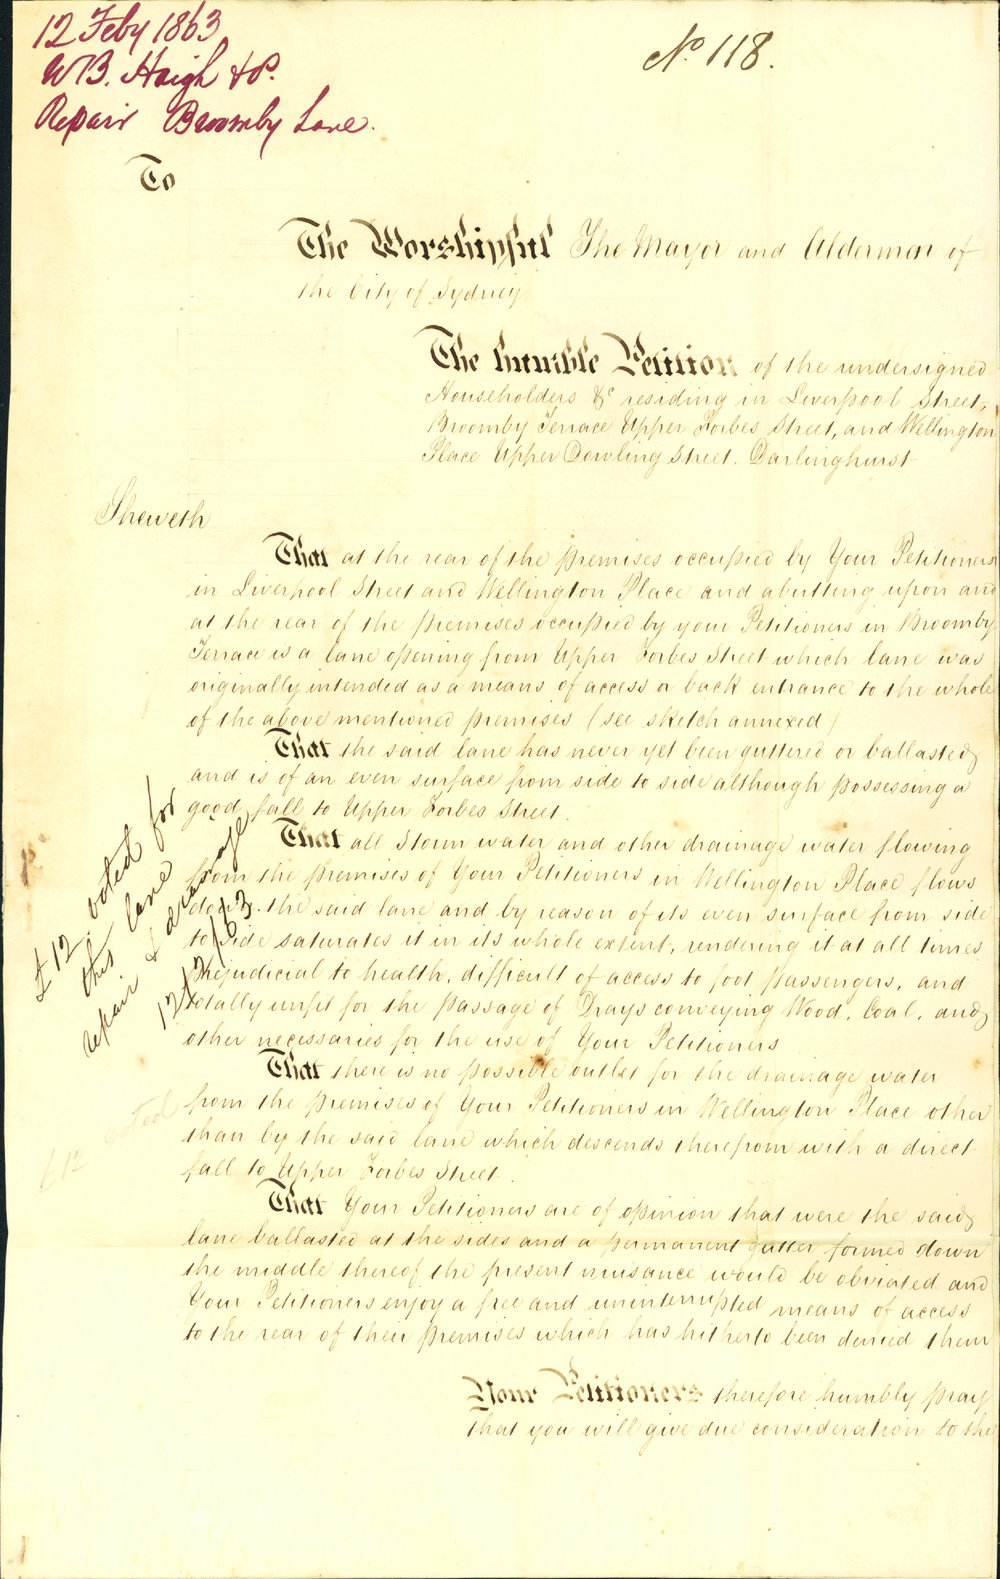 12 Feby 1863
W B. Haigh & P.
Repair Broomby Lane.
No. 118.
To
The Worshipful The Mayor and Aldermen of
the City of Sydney
The humble Petition of the undersigned
Householders &c residing in Liverpool Street,
Broomby Terrace Upper Forbes Street, and Wellington
Place Upper Dowling Street. Darlinghurst
Sheweth
That at the rear of the premises occupied by Your Petitioners
in Liverpool Street and Wellington Place and abutting upon and
at the rear of the premises occupied by your Petitioners in Broomby
Terrace is a lane opening from Upper Forbes Street which lane was
originally intended as a means of access or back entrance to the whole
of the above mentioned premises (see sketch annexed)
That the said lane has never yet been guttered or ballasted
and is of an even surface from side to side although possessing a
good fall to Upper Forbes Street.
That all Storm water and other drainage water flowing
from the premises of Your Petitioners in Wellington Place flows
down the said lane and by reason of its even surface from side
to side saturates it in its whole extent, rendering it at all times
prejudicial to health, difficult of access to foot passengers, and
totally unfit for the passage of Drays conveying Wood, Coal, and
other necessaries for the use of Your Petitioners
That there is no possible outlet for the drainage water
from the premises of Your Petitioners in Wellington Place other
than by the said lane which descends therefrom with a direct
fall to Upper Forbes Street.
That Your Petitioners are of opinion that were the said
lane ballasted at the sides and a permanent gutter formed down
the middle thereof the present nuisance would be obviated and
Your Petitioners enjoy a free and uninterrupted means of access
to the rear of their premises which has hitherto been denied them
Your Petitioners therefore humbly pray
that you will give due consideration to the
£12 voted for
this lane
repair & drainage
12/2/63
voted
£12